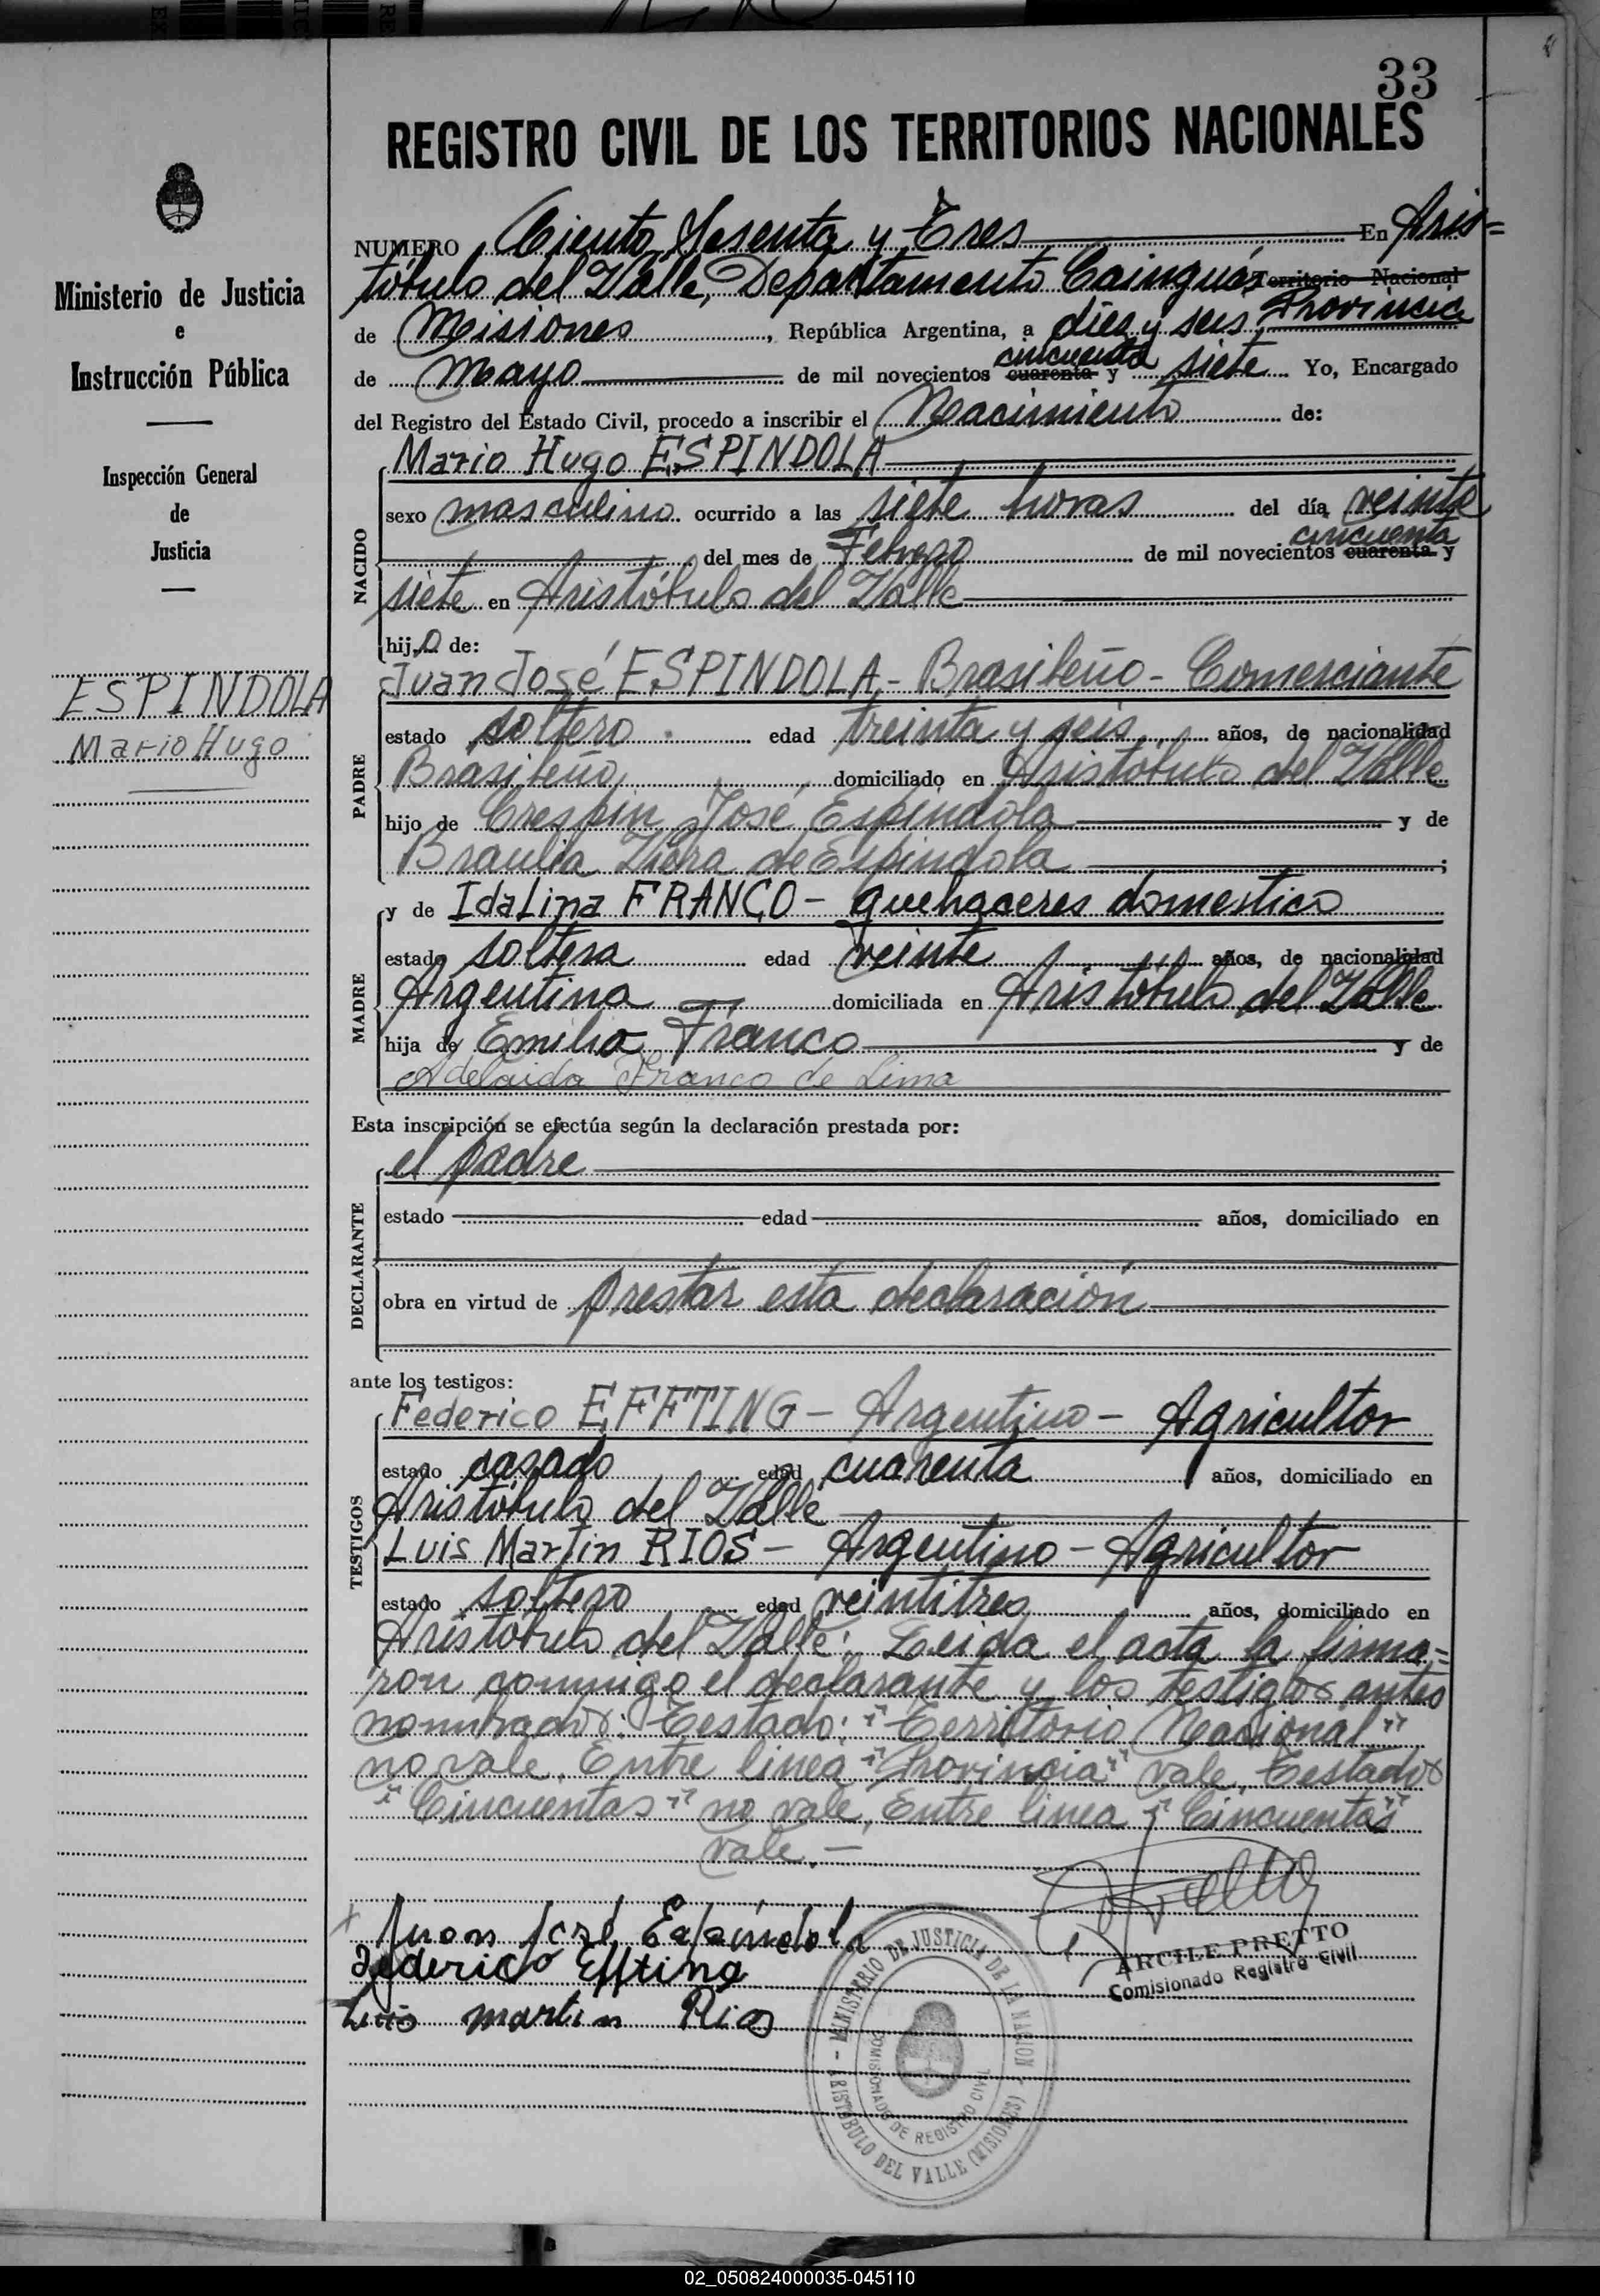 33
REGISTRO CIVIL DE LOS TERRITORIOS NACIONALES
Ministerio de Justicia
e
Instrucción Pública
Inspección General
de
Justicia
ESPINDOLA
Mario Hugo
NUMERO Ciento Sesenta y Tres En Aris=
tóbulo del Valle, Departamento Cainguás Territorio Nacional
Provincia
de Misiones, República Argentina, a diez y seis
cincuenta
de Mayo de mil novecientos cuarenta y siete. Yo, Encargado
del Registro del Estado Civil, procedo a inscribir el Nacimiento de:
NACIDO
Mario Hugo ESPINDOLA
sexo masculino ocurrido a las siete horas del día veinte
cincuenta
del mes de Febrero de mil novecientos cuarenta y
siete en Aristóbulo del Valle
hijo de:
PADRE
Juan José ESPINDOLA - Brasileño - Comerciante
estado soltero edad treinta y seis años, de nacionalidad
Brasileña domiciliado en Aristóbulo del Valle
hijo de Crespin José Espindola y de
Braulia de Espindola ;
MADRE
y de Idalina FRANCO - quehaceres domestico
estado soltera edad veinte años, de nacionalidad
Argentina domiciliada en Aristóbulo del Valle
hija de Emilio Franco y de
Adelaida Franco de Lima
Esta inscripción se efectúa según la declaración prestada por:
DECLARANTE
el padre
estado edad años, domiciliado en
obra en virtud de prestar esta declaración
ante los testigos:
TESTIGOS
Federico EFFTING - Argentino - Agricultor
estado casado edad cuarenta años, domiciliado en
Aristóbulo del Valle
Luis Martin RIOS - Argentino - Agricultor
estado soltero edad veintitres años, domiciliado en
Aristóbulo del Valle: Leida el acta la firma=
ron conmigo el declarante y los testigos antes
nombrados: Testado: "Territorio Nacional"
no vale. Entre linea "Provincia" vale, Testados
"Cincuentas" no vale, Entre linea "Cincuentas"
vale.-
Juan José Espíndola
Federico Effting
Luis martin Rios
ARCILE PRETTO
Comisionado Registro Civil
MINISTERIO DE JUSTICIA DE LA NACION
COMISIONADO DE REGISTRO CIVIL
ARISTOBULO DEL VALLE (MISIONES)
02_050824000035-045110